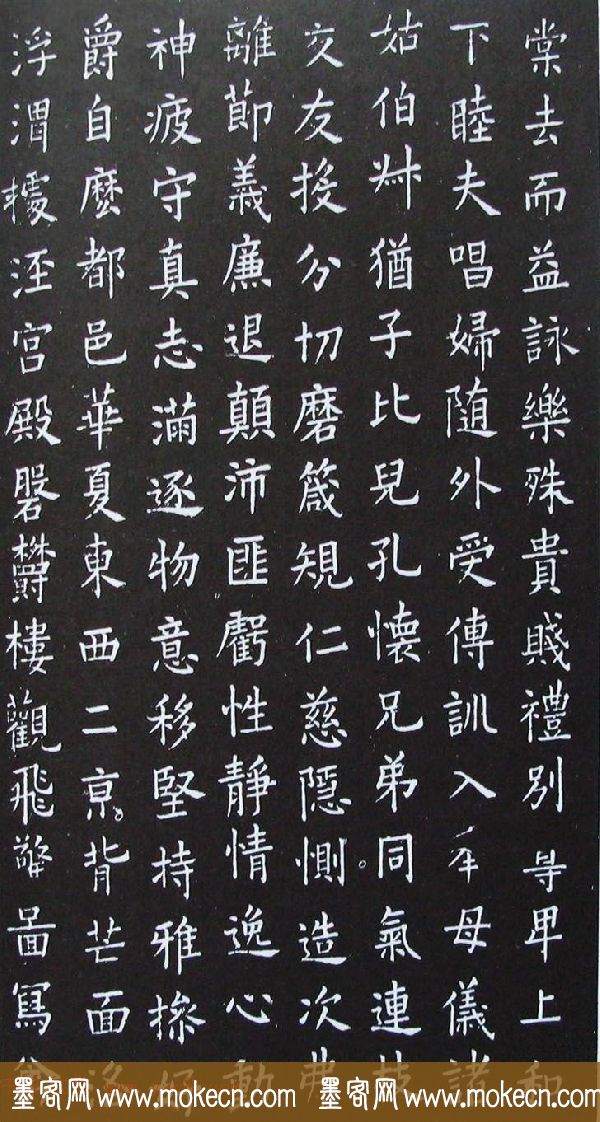 棠去而益詠樂殊貴賤禮別尊卑上和
下睦夫唱婦随外受傅訓入奉母儀諸
姑伯叔猶子比兒孔懷兄弟同氣連枝
交友投分切磨箴規仁慈隱惻造次弗
離節義廉退顛沛匪虧性靜情逸心動
神疲守真志滿逐物意移堅持雅操好
爵自麼都邑華夏東西二京背芒面洛
浮渭據涇宮殿磐欝樓觀飛驚啚寫禽
墨客网 www.mokecn.com 墨客网 www.mokecn.com